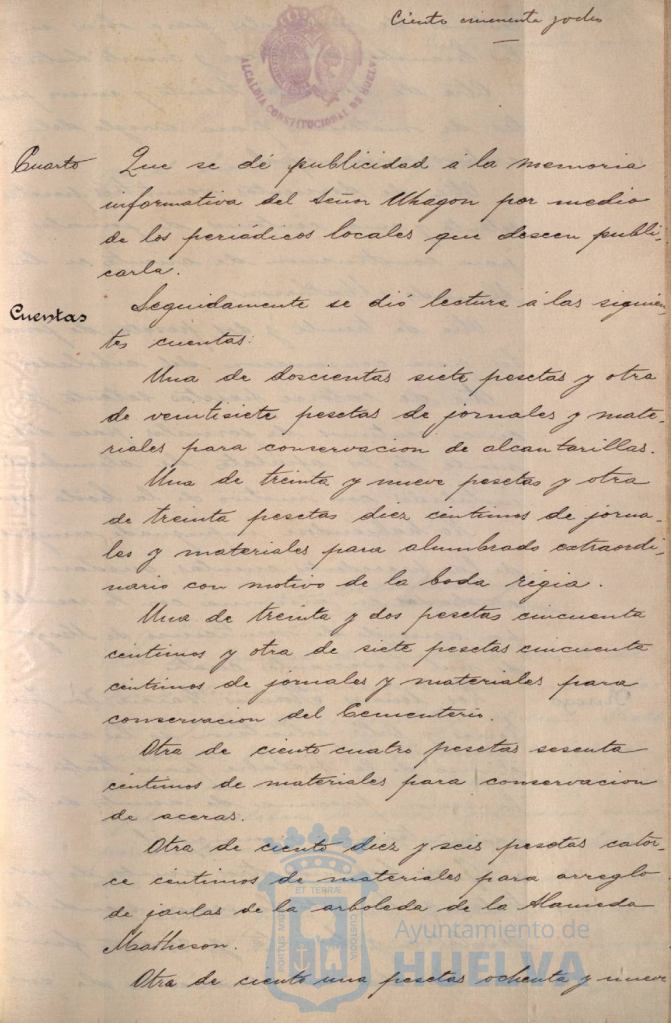 Ciento cincuenta y dos
ALCALDIA CONSTITUCIONAL DE HUELVA
Cuarto Que se dé publicidad á la memoria
informativa del Señor Uhagon por medio
de los periódicos locales que deseen publi-
carla.
Cuentas Seguidamente se dió lectura á las siguien-
tes cuentas:
Una de doscientas siete pesetas y otra
de veintisiete pesetas de jornales y mate-
riales para conservacion de alcantarillas.
Una de treinta y nueve pesetas y otra
de treinta pesetas diez céntimos de jorna-
les y materiales para alumbrado extraordi-
nario con motivo de la boda regia.
Una de treinta y dos pesetas cincuenta
céntimos y otra de siete pesetas cincuenta
céntimos de jornales y materiales para
conservacion del Cementerio.
Otra de ciento cuatro pesetas sesenta
céntimos de materiales para conservacion
de aceras.
Otra de ciento diez y seis pesetas cator-
ce céntimos de materiales para arreglo
de jaulas de la arboleda de la Alameda
Matheson.
Otra de ciento una pesetas ochenta y nueve
ET TERRÆ
PORTUS MARIS
CUSTODIA
Ayuntamiento de
HUELVA